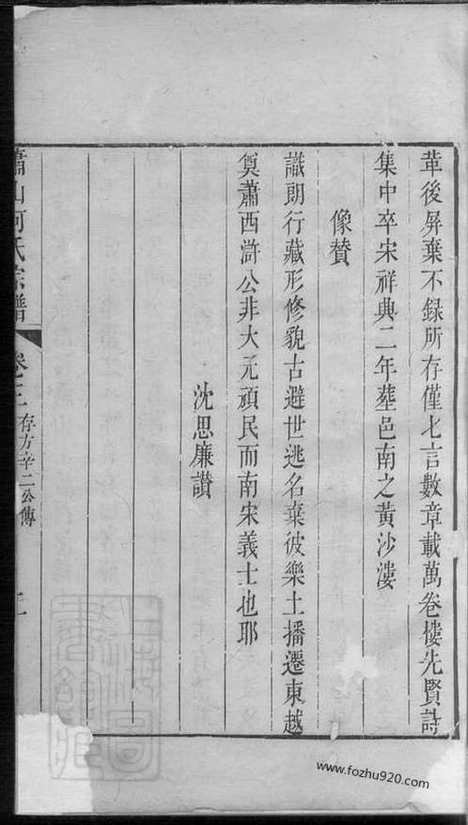 革後屏棄不録所存僅七言數章載萬卷樓先賢詩
集中卒宋祥典二年塟邑南之黃沙漊
像贊
識朗行藏形修貌古避世逃名棄彼樂土播遷東越
奠蕭西滸公非大元頑民而南宋義士也耶
沈思廉讚
蕭山何氏宗譜
卷十三 存方辛二公傳
www.fozhu920.com